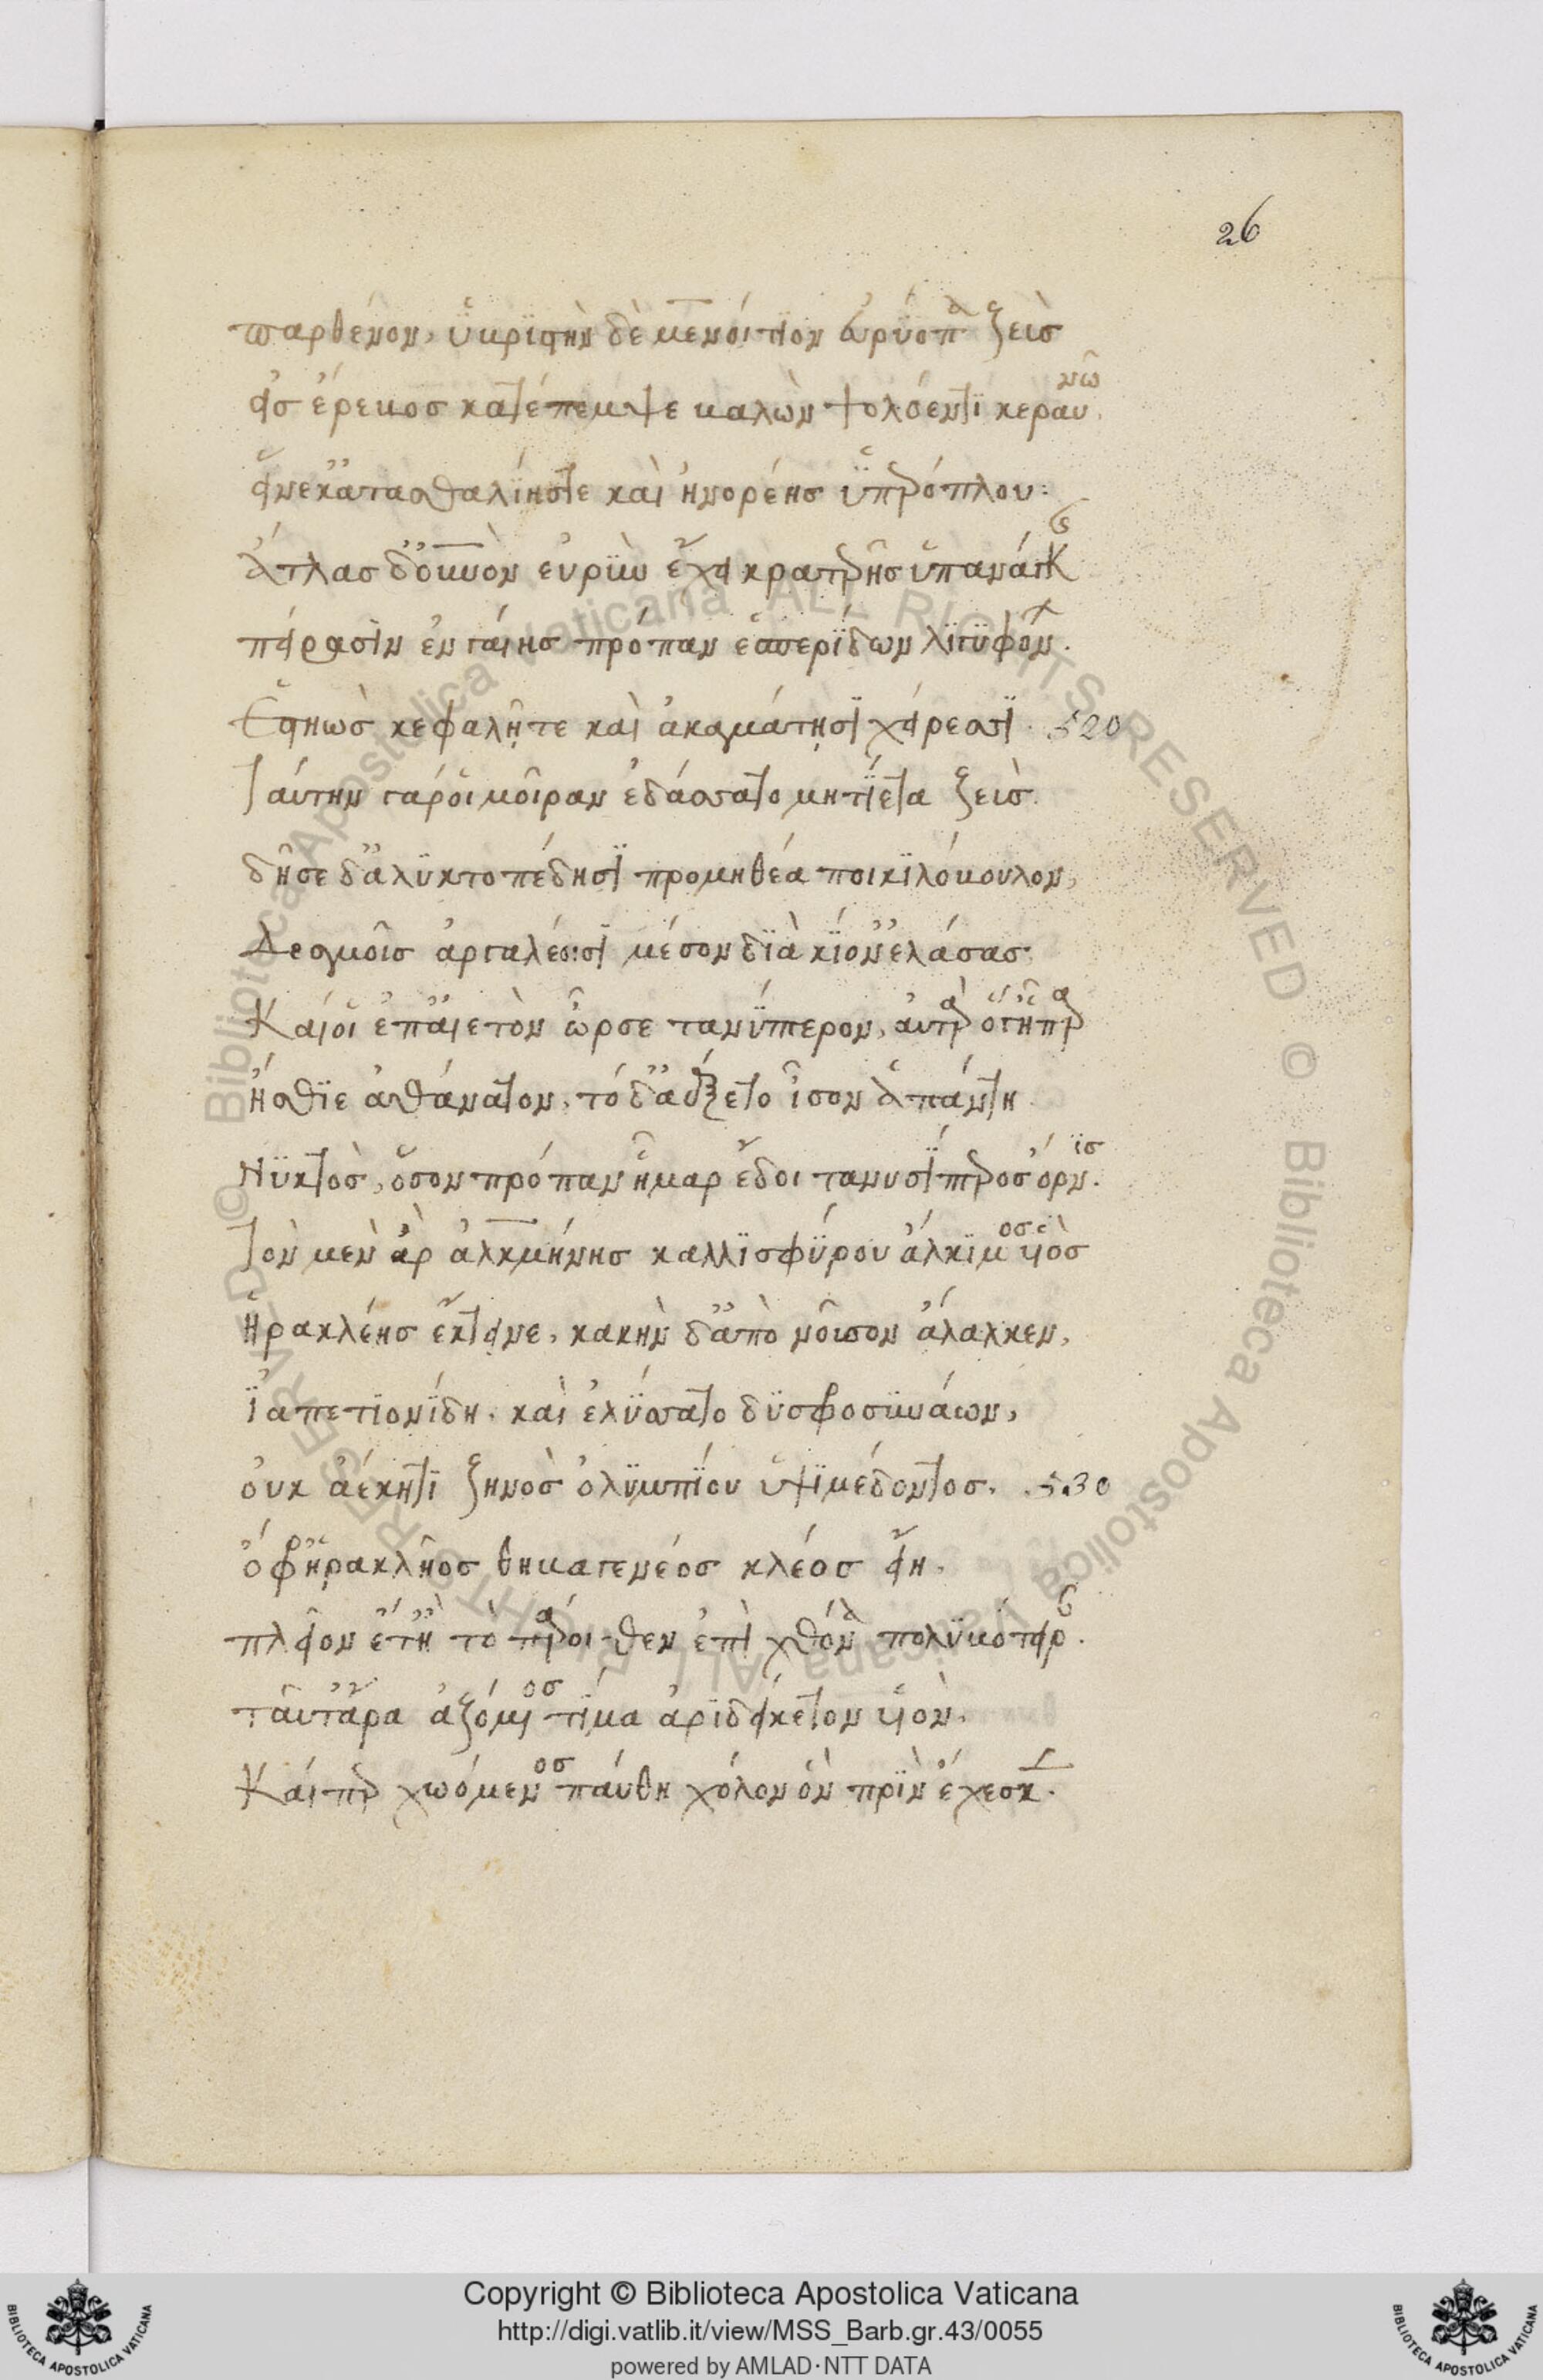 26
παρθένον, ὑβριστὴν δὲ μενοίτιον εὐρύοπα ζεὺς
εἰς ἔρεβος κατέπεμψε βαλὼν ψολόεντι κεραυνῶ.
εἵνεκ' ἀτασθαλίης τε καὶ ἠνορέης ὑπερόπλου:
ἄτλας δ' οὐρανὸν εὐρὺν ἔχει κρατερῆς ὑπ' ἀνάγκης
πείρασιν ἐν γαίης πρόπαρ ἑσπερίδων λιγυφώνων.
Ἑστηὼς κεφαλῇ τε καὶ ἀκαμάτῃσι χείρεσσι. 520
Ταύτην γάρ οἱ μοῖραν ἐδάσσατο μητίετα ζεύς.
δῆσε δ' ἀλυκτοπέδησι προμηθέα ποικιλόβουλον,
Δεσμοῖς ἀργαλέοισι μέσον διὰ κίον' ἐλάσας.
Καί οἱ ἐπ' αἰετὸν ὦρσε τανύπτερον, αὐτὰρ ὅγ' ἧπαρ
ἤσθιε ἀθάνατον, τὸ δ' αὔξετο ἶσον ἁπάντη
Νυκτὸς, ὅσον πρόπαν ἦμαρ ἔδοι τανυσίπτερος ὄρνις.
Τὸν μὲν ἄρ' ἀλκμήνης καλλισφύρου ἄλκιμος υἱὸς
Ἡρακλέης ἔκτεινε, κακὴν δ' ἀπὸ νοῦσον ἄλαλκεν,
ἰαπετιονίδη, καὶ ἐλύσατο δυσφροσυνάων,
οὐκ ἀέκητι ζηνὸς ὀλυμπίου ὑψιμέδοντος. 530
ὄφρ' ἡρακλῆος θηβαγενέος κλέος εἴη.
πλεῖον ἔτ' ἢ τὸ πάροιθεν ἐπὶ χθόνα πολυβότειραν.
ταῦτ' ἄρα ἀζόμενος τίμα ἀριδείκετον υἱόν.
Καίπερ χωόμενος παύθη χόλον ὃν πρὶν ἔχεσκεν.
Copyright © Biblioteca Apostolica Vaticana
http://digi.vatlib.it/view/MSS_Barb.gr.43/0055
powered by AMLAD·NTT DATA